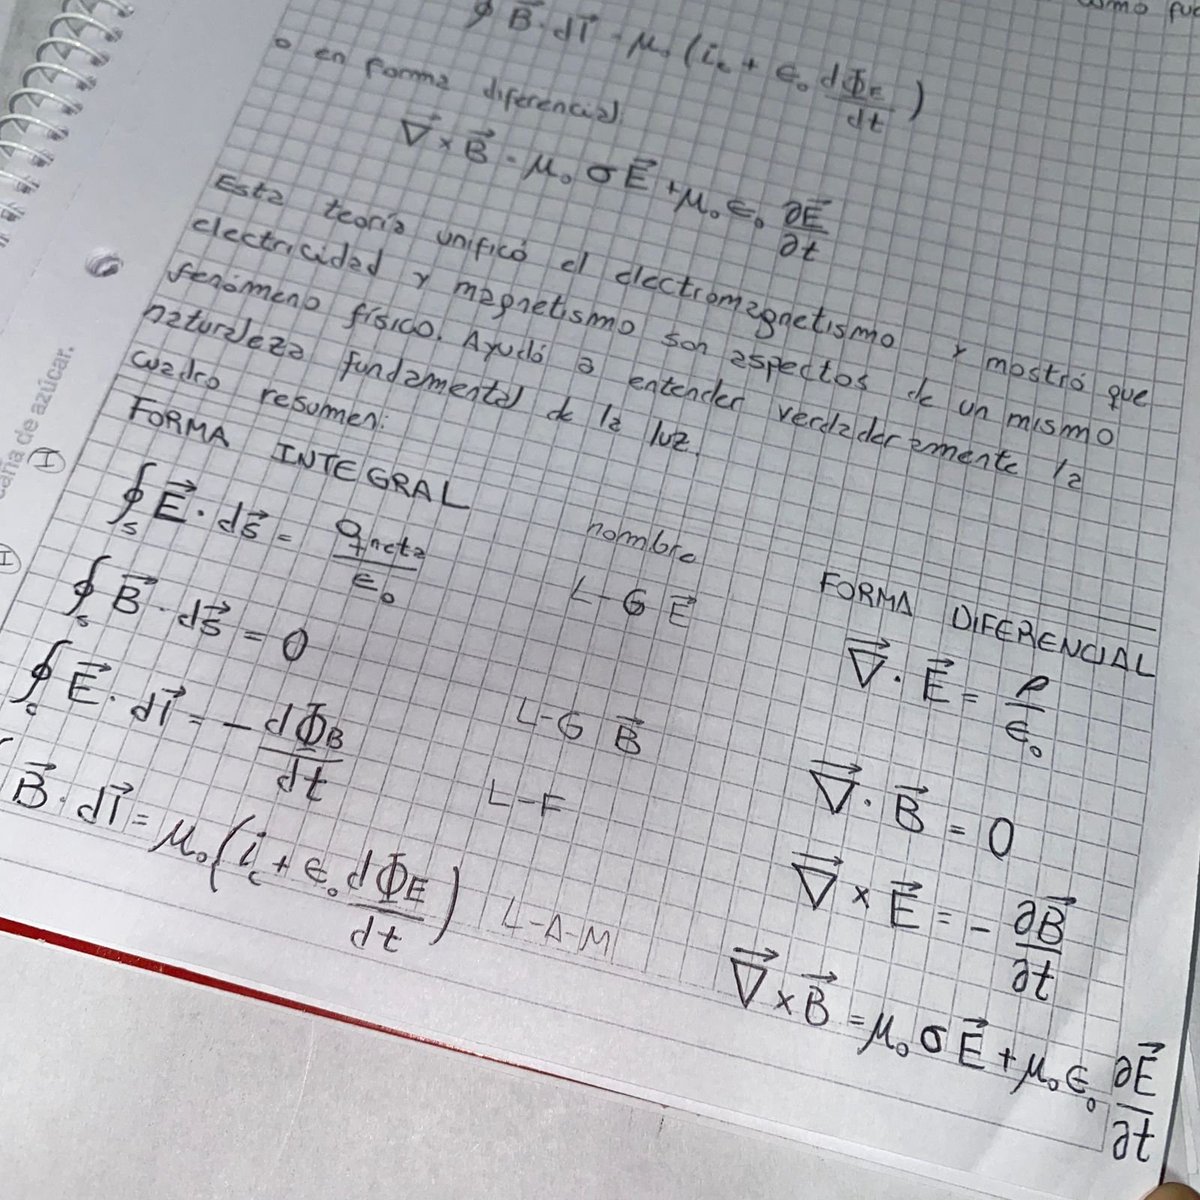 como
∮ B⃗ · dl⃗ = μ₀ (i_c + ε₀ dΦ_E/dt)
o en forma diferencial
∇⃗ × B⃗ = μ₀ σE⃗ + μ₀ε₀ ∂E⃗/∂t
Esta teoría unificó el electromagnetismo y mostró que
electricidad y magnetismo son aspectos de un mismo
fenómeno físico. Ayudó a entender verdaderamente la
naturaleza fundamental de la luz.
cuadro resumen:
FORMA INTEGRAL nombre FORMA DIFERENCIAL
I ∮_S E⃗ · ds⃗ = q neta/ε₀ L-G E⃗ ∇⃗ · E⃗ = ρ/ε₀
∮_S B⃗ · ds⃗ = 0 L-G B⃗ ∇⃗ · B⃗ = 0
∮_c E⃗ · dl⃗ = - dΦ_B/dt L-F ∇⃗ × E⃗ = - ∂B⃗/∂t
B⃗ · dl⃗ = μ₀ (i_c + ε₀ dΦ_E/dt) L-A-M ∇⃗ × B⃗ = μ₀ σE⃗ + μ₀ε₀ ∂E⃗/∂t
caña de azúcar.